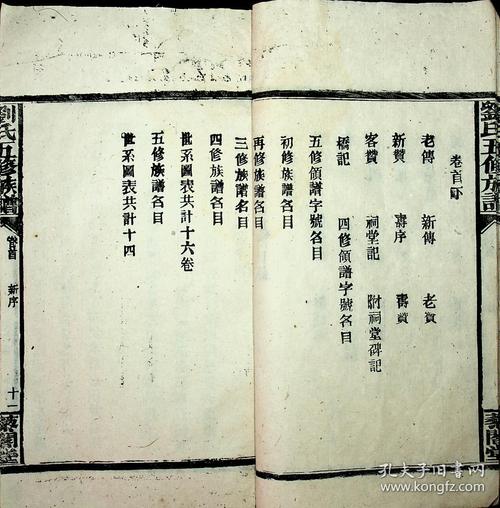 劉氏五修族譜
卷首下
老傳 新傳 老贊
新贊 壽序 壽贊
客贊 祠堂記 附祠堂碑記
橋記 四修領譜字號名目
五修領譜字號名目
初修族譜名目
再修族譜名目
三修族譜名目
四修族譜名目
世系圖表共計十六卷
五修族譜名目
世系圖表共計十四
劉氏五修族譜
卷首
新序
十二
藜閣堂
孔夫子旧书网
www.kongfz.com